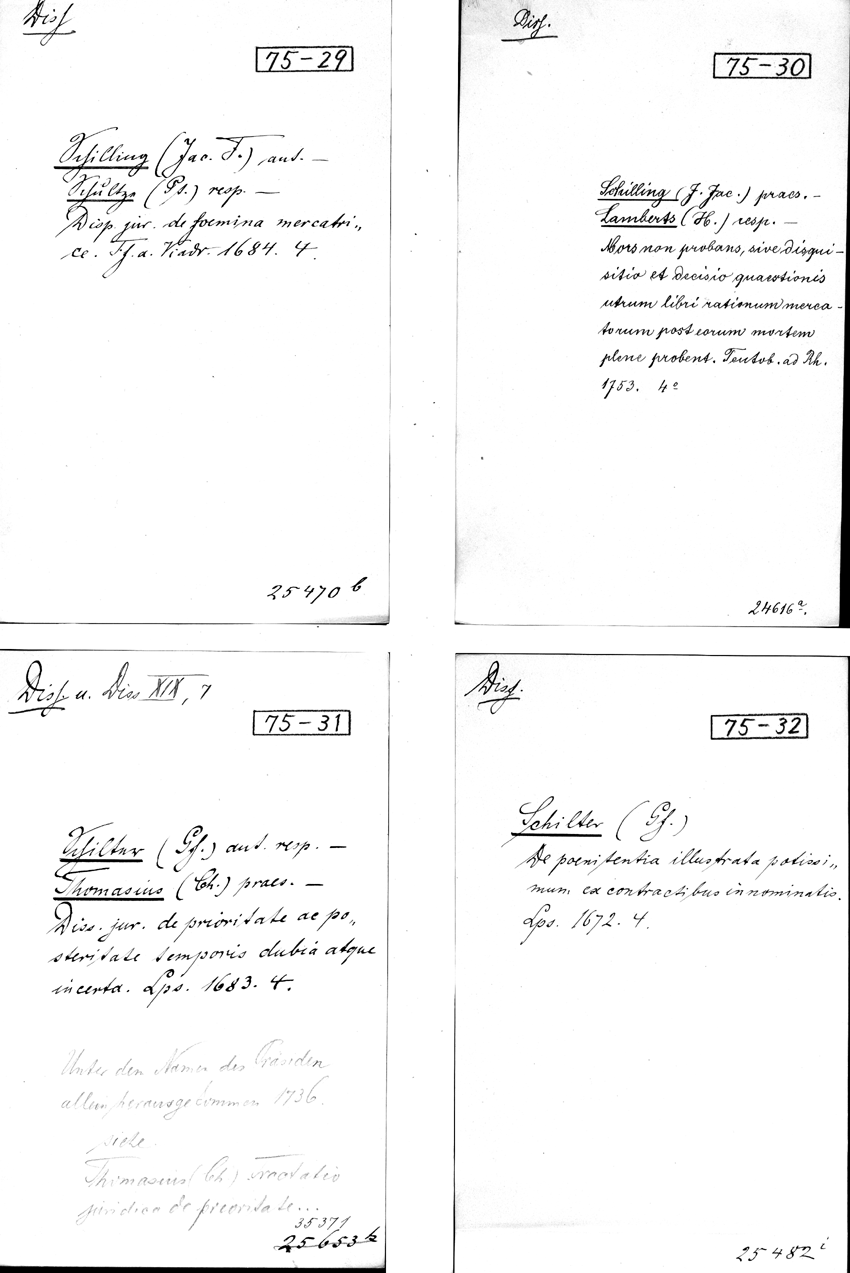 Diss
75-29
Schilling (Jac. F.) aut. —
Schultze (Gf.) resp. —
Disp. jur. de foemina mercatri„
ce. Ff. a. Viadr. 1684. 4.
25470 b
Diss.
75-30
Schilling (J. Jac.) praes. —
Lamberts (H.) resp. —
Mors non probans, sive disqui-
sitio et decisio quaestionis
utrum libri rationum merca-
torum post eorum mortem
plene probent. Teutob. ad Rh.
1753. 4o
24616 a.
Diss. u. Diss XIX, 7
75-31
Schilter (Gf.) aut. resp. —
Thomasius (Ch.) praes. —
Diss. jur. de prioritate ac po„
steritate temporis dubia atque
incerta. Lps. 1683. 4.
Unter dem Namen des Präsiden
allein herausgekommen 1736.
siehe
Thimasius (Ch) Tractatio
juridica de prioritate...
35371
25653 k
Diss.
75-32
Schilter (Gf.)
De poenitentia illustrata potissi„
mum ex contractibus innominatis.
Lps. 1672. 4.
25482 i